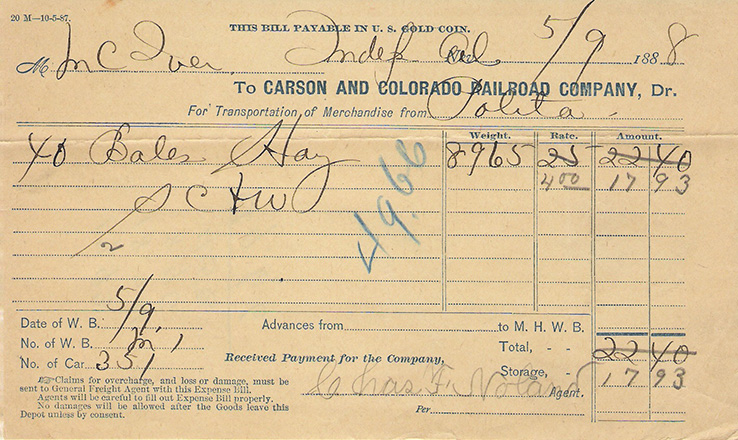 20 M—10-5-87.
THIS BILL PAYABLE IN U. S. GOLD COIN.
M Mc Iver, Indep Cal 5/9 1888
To CARSON AND COLORADO RAILROAD COMPANY, Dr.
For Transportation of Merchandise from Polita.
Weight. Rate. Amount.
40 Bales Hay 8965 25 22 40
4 00 17 93
S C & W
2
49.66
Date of W. B. 5/9, Advances from to M. H. W. B.
No. of W. B. M 1 Total, - - 22 40
No. of Car 351 Received Payment for the Company, Storage, - 17 93
Claims for overcharge, and loss or damage, must be
sent to General Freight Agent with this Expense Bill.
Chas. F. Noland Agent.
Agents will be careful to fill out Expense Bill properly.
No damages will be allowed after the Goods leave this
Depot unless by consent.
Per